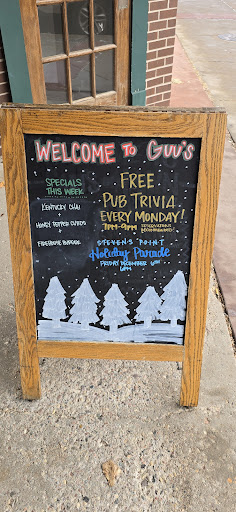 WELCOME TO GUU'S
SPECIALS
THIS WEEK
KENTUCKY CHAI
HONEY PEPPER CURDS
FIREHOUSE BURGER
FREE
PUB TRIVIA
EVERY MONDAY!
7PM-9PM
STEVENS POINT
Holiday Parade
FRIDAY DECEMBER
6PM